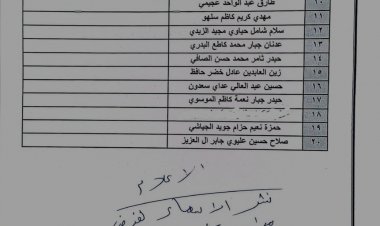 طارق عبد الواحد عجيمي ١٠
مهدي كريم كاظم سلهو ١١
سلام شامل حياوي مجيد الزيدي ١٢
عدنان جبار محمد كاطع البدري ١٣
حيدر ثامر محمد حسن الصافي ١٤
زين العابدين عادل خضر حافظ ١٥
حسين عبد العالي عداي سعدون ١٦
حيدر جبار نعمة كاظم الموسوي ١٧
١٨
حمزة نعيم حزام جويد الجياشي ١٩
صلاح حسين عليوي جابر ال العزيز ٢٠
الاعلام
نشر الاسماء لغرض